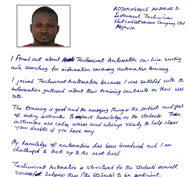 Instrument Technician
Nigeria
I found out about Technicuest Automation on-line while
was searching for information covering automation training.
I joined Technicuest Automation because I was satisfied with the
information gathered about their training contents on their web
site.
The training is good and the amazing thing is the patient and zeal
of every instructor to impart knowledge on the students. Their
instructors are calm, sense and always ready to help clear
your doubts if you have any.
My knowledge of automation has been broadened and I am
challenged to take up to the next level.
Technicuest Automation is structured for the students overall
success, helping them (the students) to be proficient.